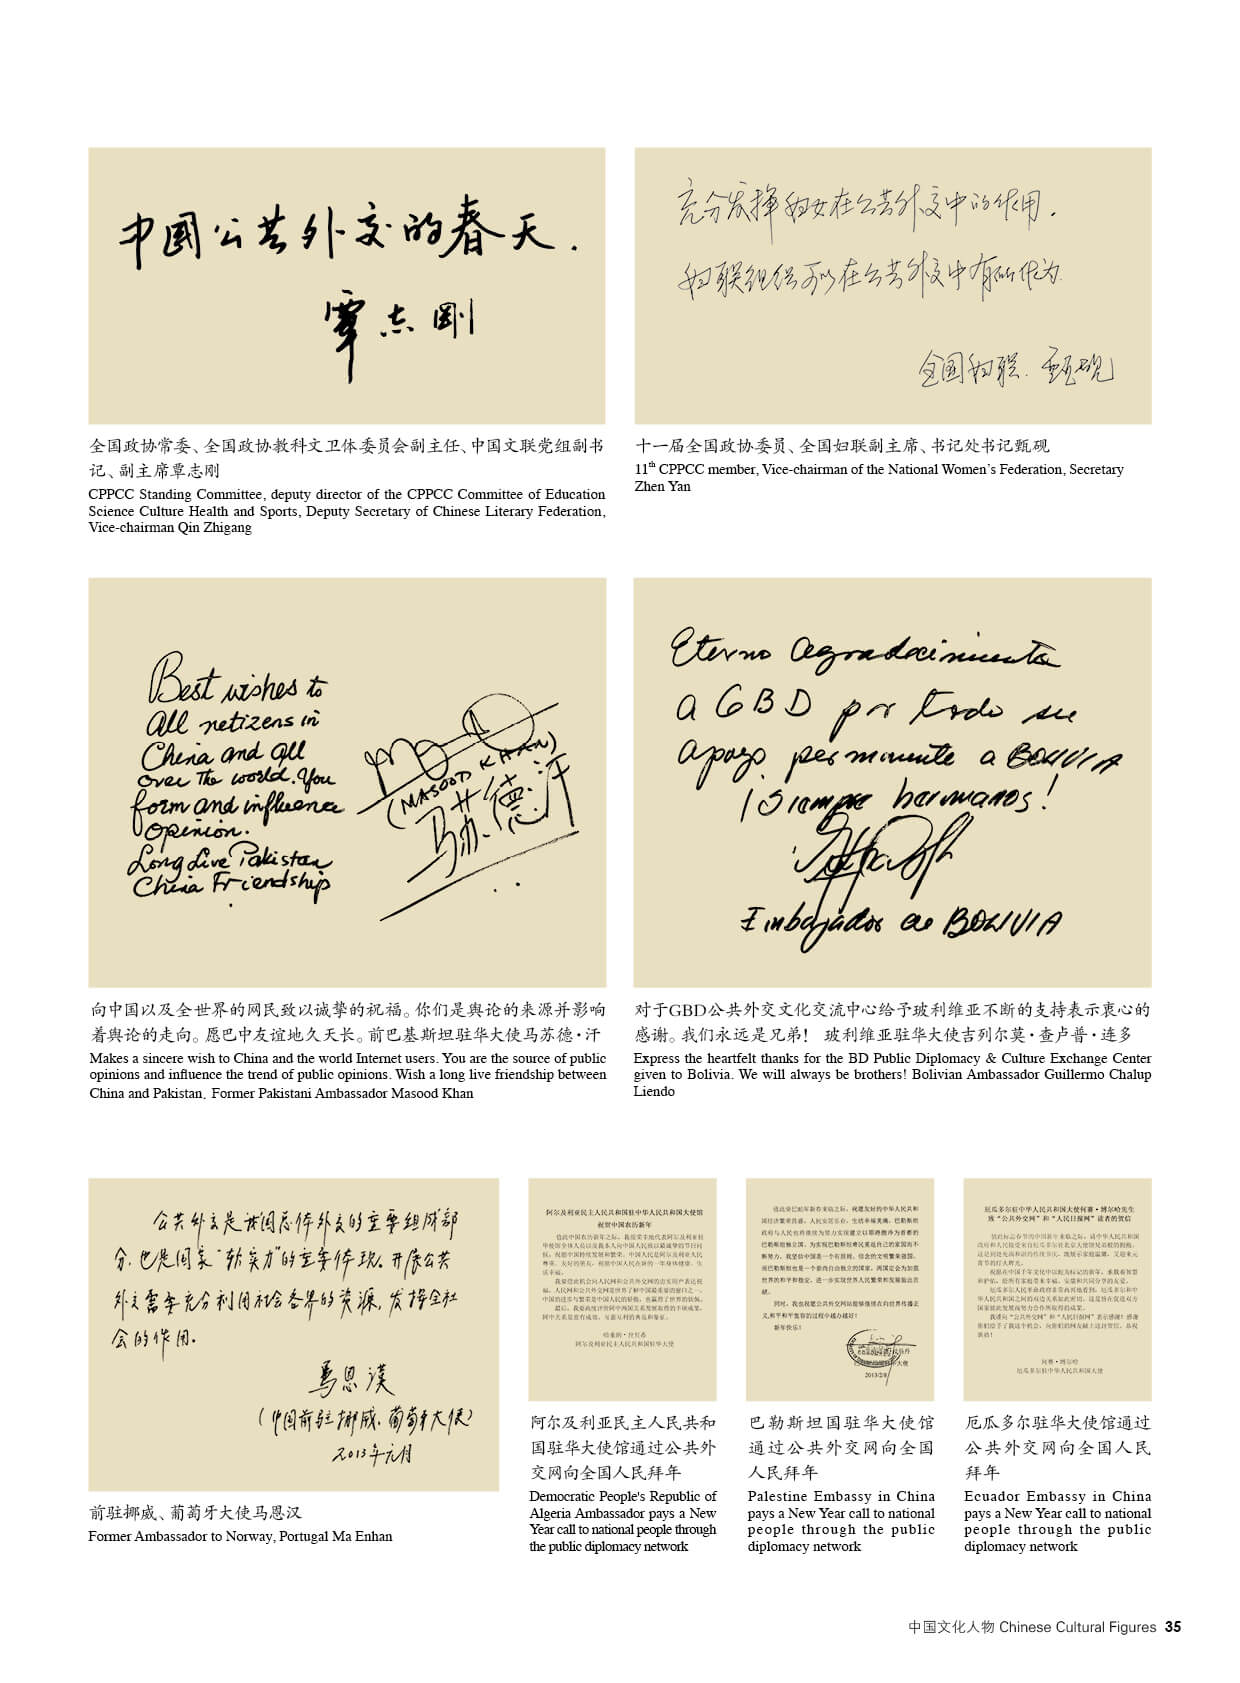 中国公共外交的春天.
覃志刚
全国政协常委、全国政协教科文卫体委员会副主任、中国文联党组副书
记、副主席覃志刚
CPPCC Standing Committee, deputy director of the CPPCC Committee of Education
Science Culture Health and Sports, Deputy Secretary of Chinese Literary Federation,
Vice-chairman Qin Zhigang
充分发挥妇女在公共外交中的作用.
妇联组织可以在公共外交中有所作为.
全国妇联. 甄砚
十一届全国政协委员、全国妇联副主席、书记处书记甄砚
11th CPPCC member, Vice-chairman of the National Women's Federation, Secretary
Zhen Yan
Best wishes to
all netizens in
China and all
over the world. You
form and influence
opinion.
Long Live Pakistan
China Friendship.
(MASOOD KHAN)
马苏德·汗
向中国以及全世界的网民致以诚挚的祝福。你们是舆论的来源并影响
着舆论的走向。愿巴中友谊地久天长。前巴基斯坦驻华大使马苏德·汗
Makes a sincere wish to China and the world Internet users. You are the source of public
opinions and influence the trend of public opinions. Wish a long live friendship between
China and Pakistan. Former Pakistani Ambassador Masood Khan
Eterno agradecimiento
a GBD por todo su
apoyo permanente a BOLIVIA
¡Siempre hermanos!
Embajador de BOLIVIA
对于GBD公共外交文化交流中心给予玻利维亚不断的支持表示衷心的
感谢。我们永远是兄弟！ 玻利维亚驻华大使吉列尔莫·查卢普·连多
Express the heartfelt thanks for the BD Public Diplomacy & Culture Exchange Center
given to Bolivia. We will always be brothers! Bolivian Ambassador Guillermo Chalup
Liendo
公共外交是我国总体外交的重要组成部
分，也是国家“软实力”的重要体现。开展公共
外交需要充分利用社会各界的资源，发挥全社
会的作用。
马恩汉
（中国前驻挪威、葡萄牙大使）
2013年元月
前驻挪威、葡萄牙大使马恩汉
Former Ambassador to Norway, Portugal Ma Enhan
阿尔及利亚民主人民共和国驻中华人民共和国大使馆
祝贺中国农历新年
阿尔及利亚民主人民共和国驻华大使馆通过公共外
交网向全国人民拜年
Democratic People's Republic of
Algeria Ambassador pays a New
Year call to national people through
the public diplomacy network
新年快乐！
2013/2/8
巴勒斯坦国驻华大使馆
通过公共外交网向全国
人民拜年
Palestine Embassy in China
pays a New Year call to national
people through the public
diplomacy network
厄瓜多尔驻中华人民共和国大使何赛·博尔哈先生
致“公共外交网”和“人民日报网”读者的贺信
何赛·博尔哈
厄瓜多尔驻中华人民共和国大使
厄瓜多尔驻华大使馆通过
公共外交网向全国人民
拜年
Ecuador Embassy in China
pays a New Year call to national
people through the public
diplomacy network
中国文化人物 Chinese Cultural Figures 35